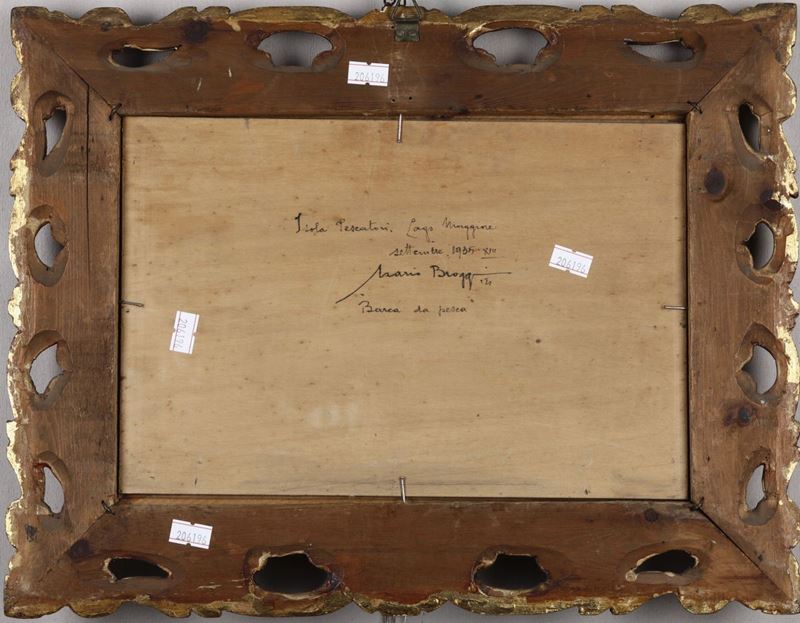 206196
Isola Pescatori. Lago Maggiore
settembre 1935-XIII
206196
Mario Broggi
"Barca da pesca"
206196
206196